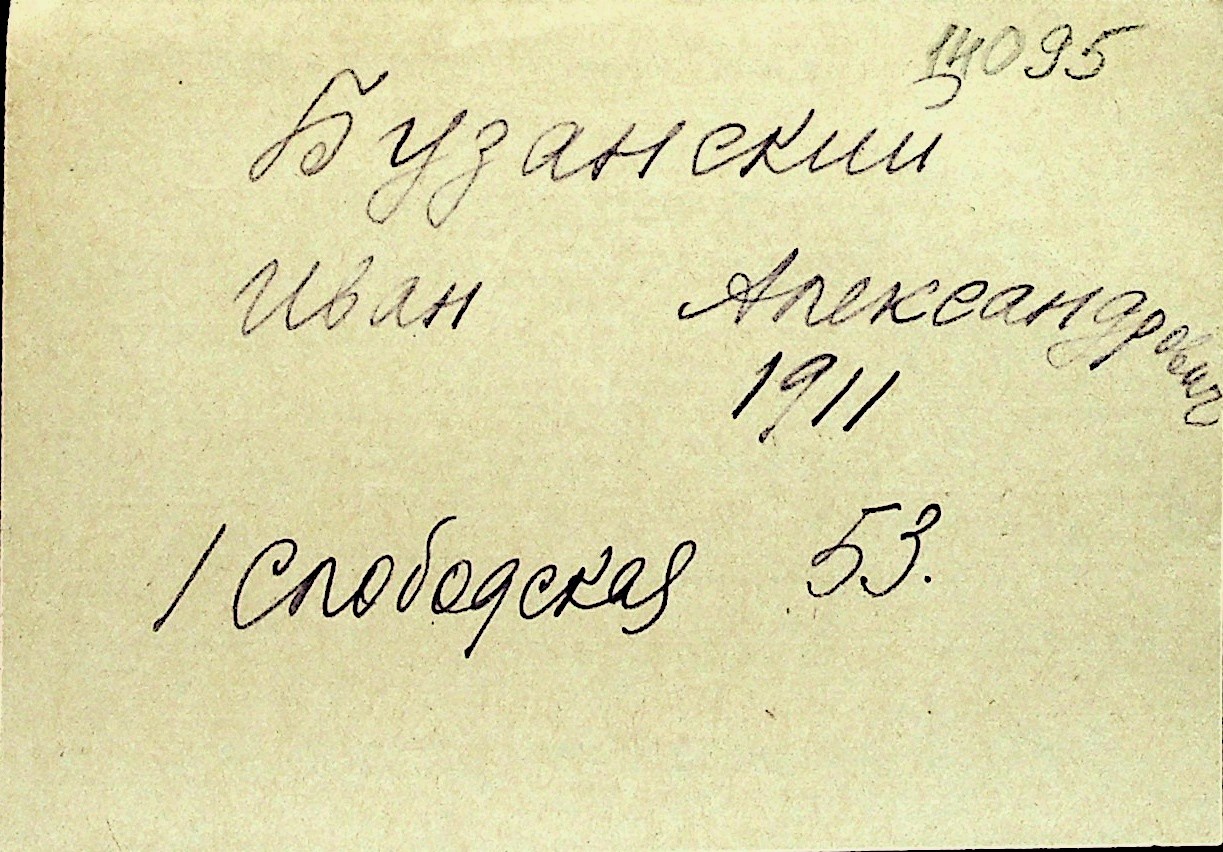 14095
Бузанский
Иван Александрович
1911
1 Слободская 53.